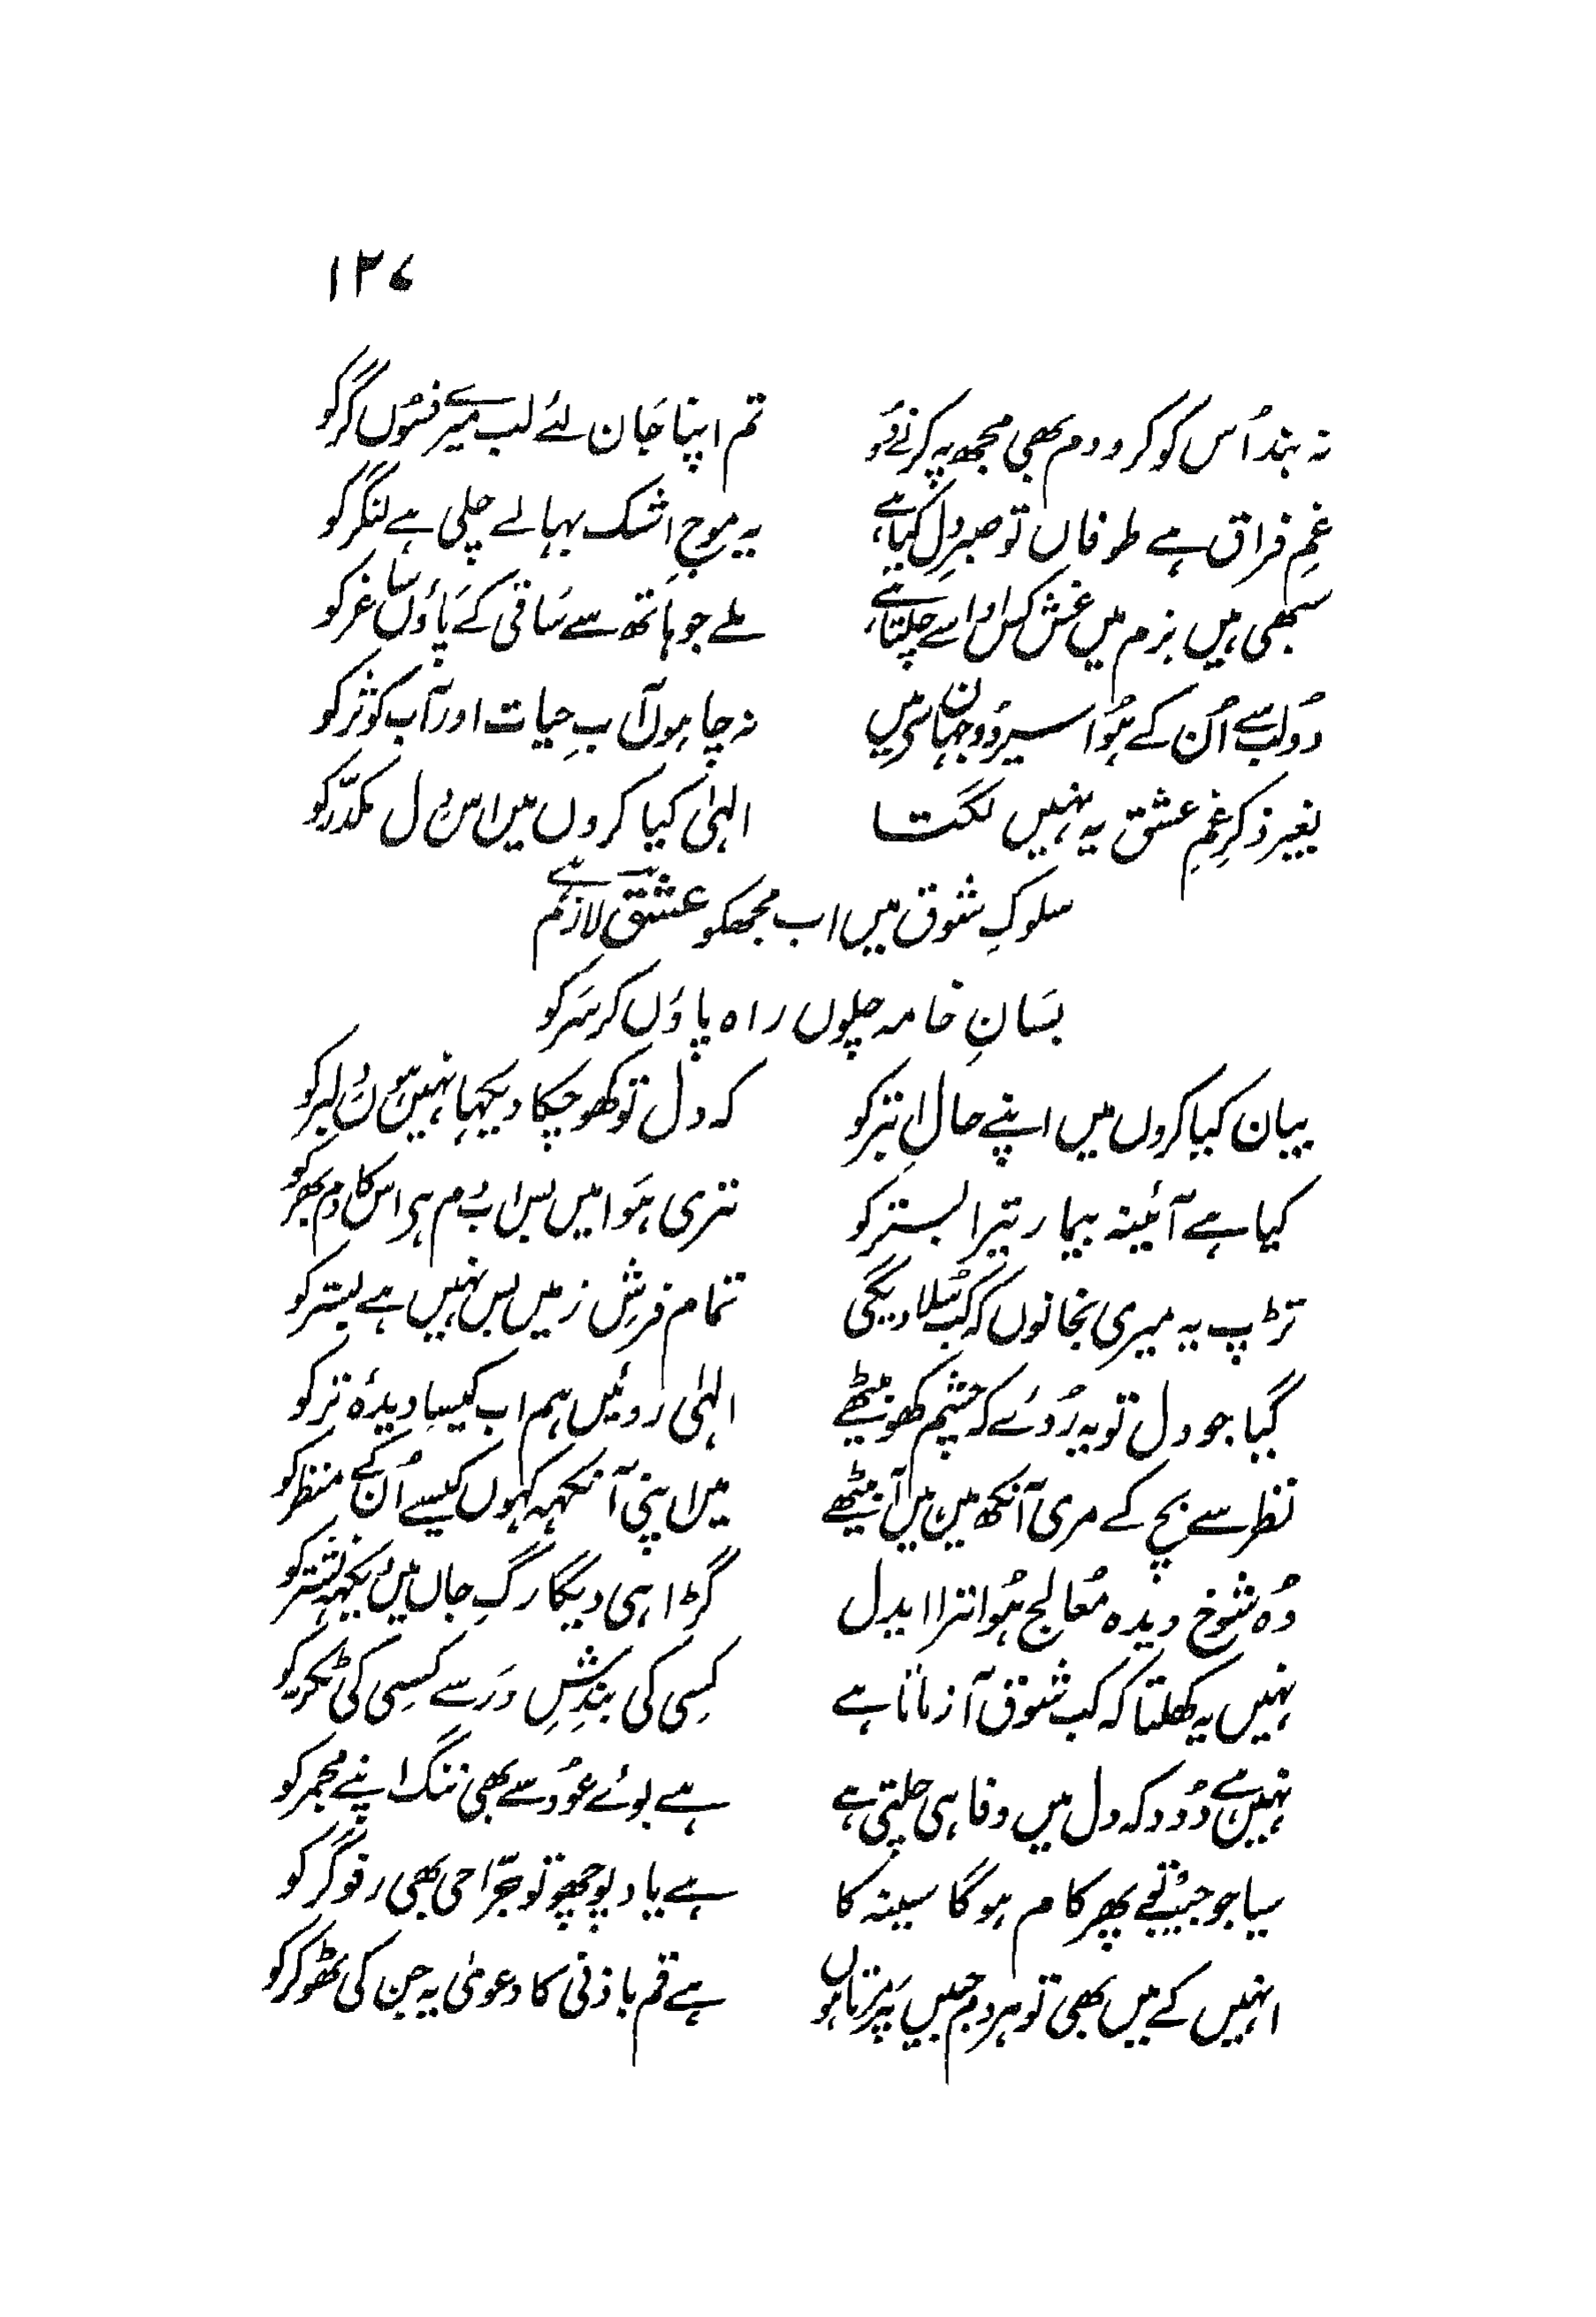 ۱۲۷
نہ بند اُس کو کرو دم بھی مجھ پہ کرنے دُو
تم اپنا جَان لئے لب میرے فسُوں گر گو
غمِ فراق ہے طوفاں تو صبرِ دل کیا ہے
یہ موجِ اشک بہالے چلی ہے لنگر گو
سبھی ہیں بزم میں غش کس ادا سے چلتا ہے
ملے جو ہاتھ سے سَاقی کے پَاؤں سَاغر کو
دُو لب سے اُن کے ہُوا سیر دُو جہان میں
نہ چاہوں آبِ حیات اور آب کوثر کو
بغیر ذکرِ غمِ عشق یہ نہیں لگتا
الہٰی کیا کروں میں اس دل مکدّر کو
سلوکِ شوق میں اب مجھکو عشقؔ لازم ہے
بسَانِ خامہ چلوں راہ پاؤں کر سَر کو
بیان کیا کروں میں اپنے حالِ ابتر کو
کہ دل تو کھو چکا دیکہا نہیں ہُوں دلبر کو
کیا ہے آئینہ بیمار تیرا بستر کو
تری ہَوا میں بس اب دم ہر اس کا دم بھر کو
تڑپ یہ میری نجانوں کہ کب سُلا دیگی
تمام فرشِ زمیں بس نہیں ہے بستر کو
گیا جو دل تو یہ رُوئے کہ چشم کھو بیٹھے
الہٰی روئیں ہم اب کیسِا دیدۂ تر کو
نظر سے بچ کے مری آنکھ میں میں آ بیٹھے
میں اپنی آنکہہ کہوں کیسے اُن کے منظر کو
وُہ شوخ دیدہ مُعالج ہُوا ترا ایدل
گڑا ہی دیگا رگِ جاں میں یہ نشتر کو
نہیں یہ کھلتا کہ کب شوق آزماتا ہے
کسِی کی بندشِ دَر سے کسِی کی ٹکر کو
نہیں ہے دُود کہ دل میں وفا ہی جلتی ہے
ہے بوئے عُود سے بھی ننگ اپنے مجمر کو
سیا جو جیب تو پھر کام ہوگا سینہ کا
ہے یاد پوچھو تو جرّاحی بھی رفوگر کو
انہیں کے میں بھی تو ہر دم جبیں پَہ مرتا ہوں
ہے قم باذنی کا دعویٰ یہ جن کی ٹھوکر کو